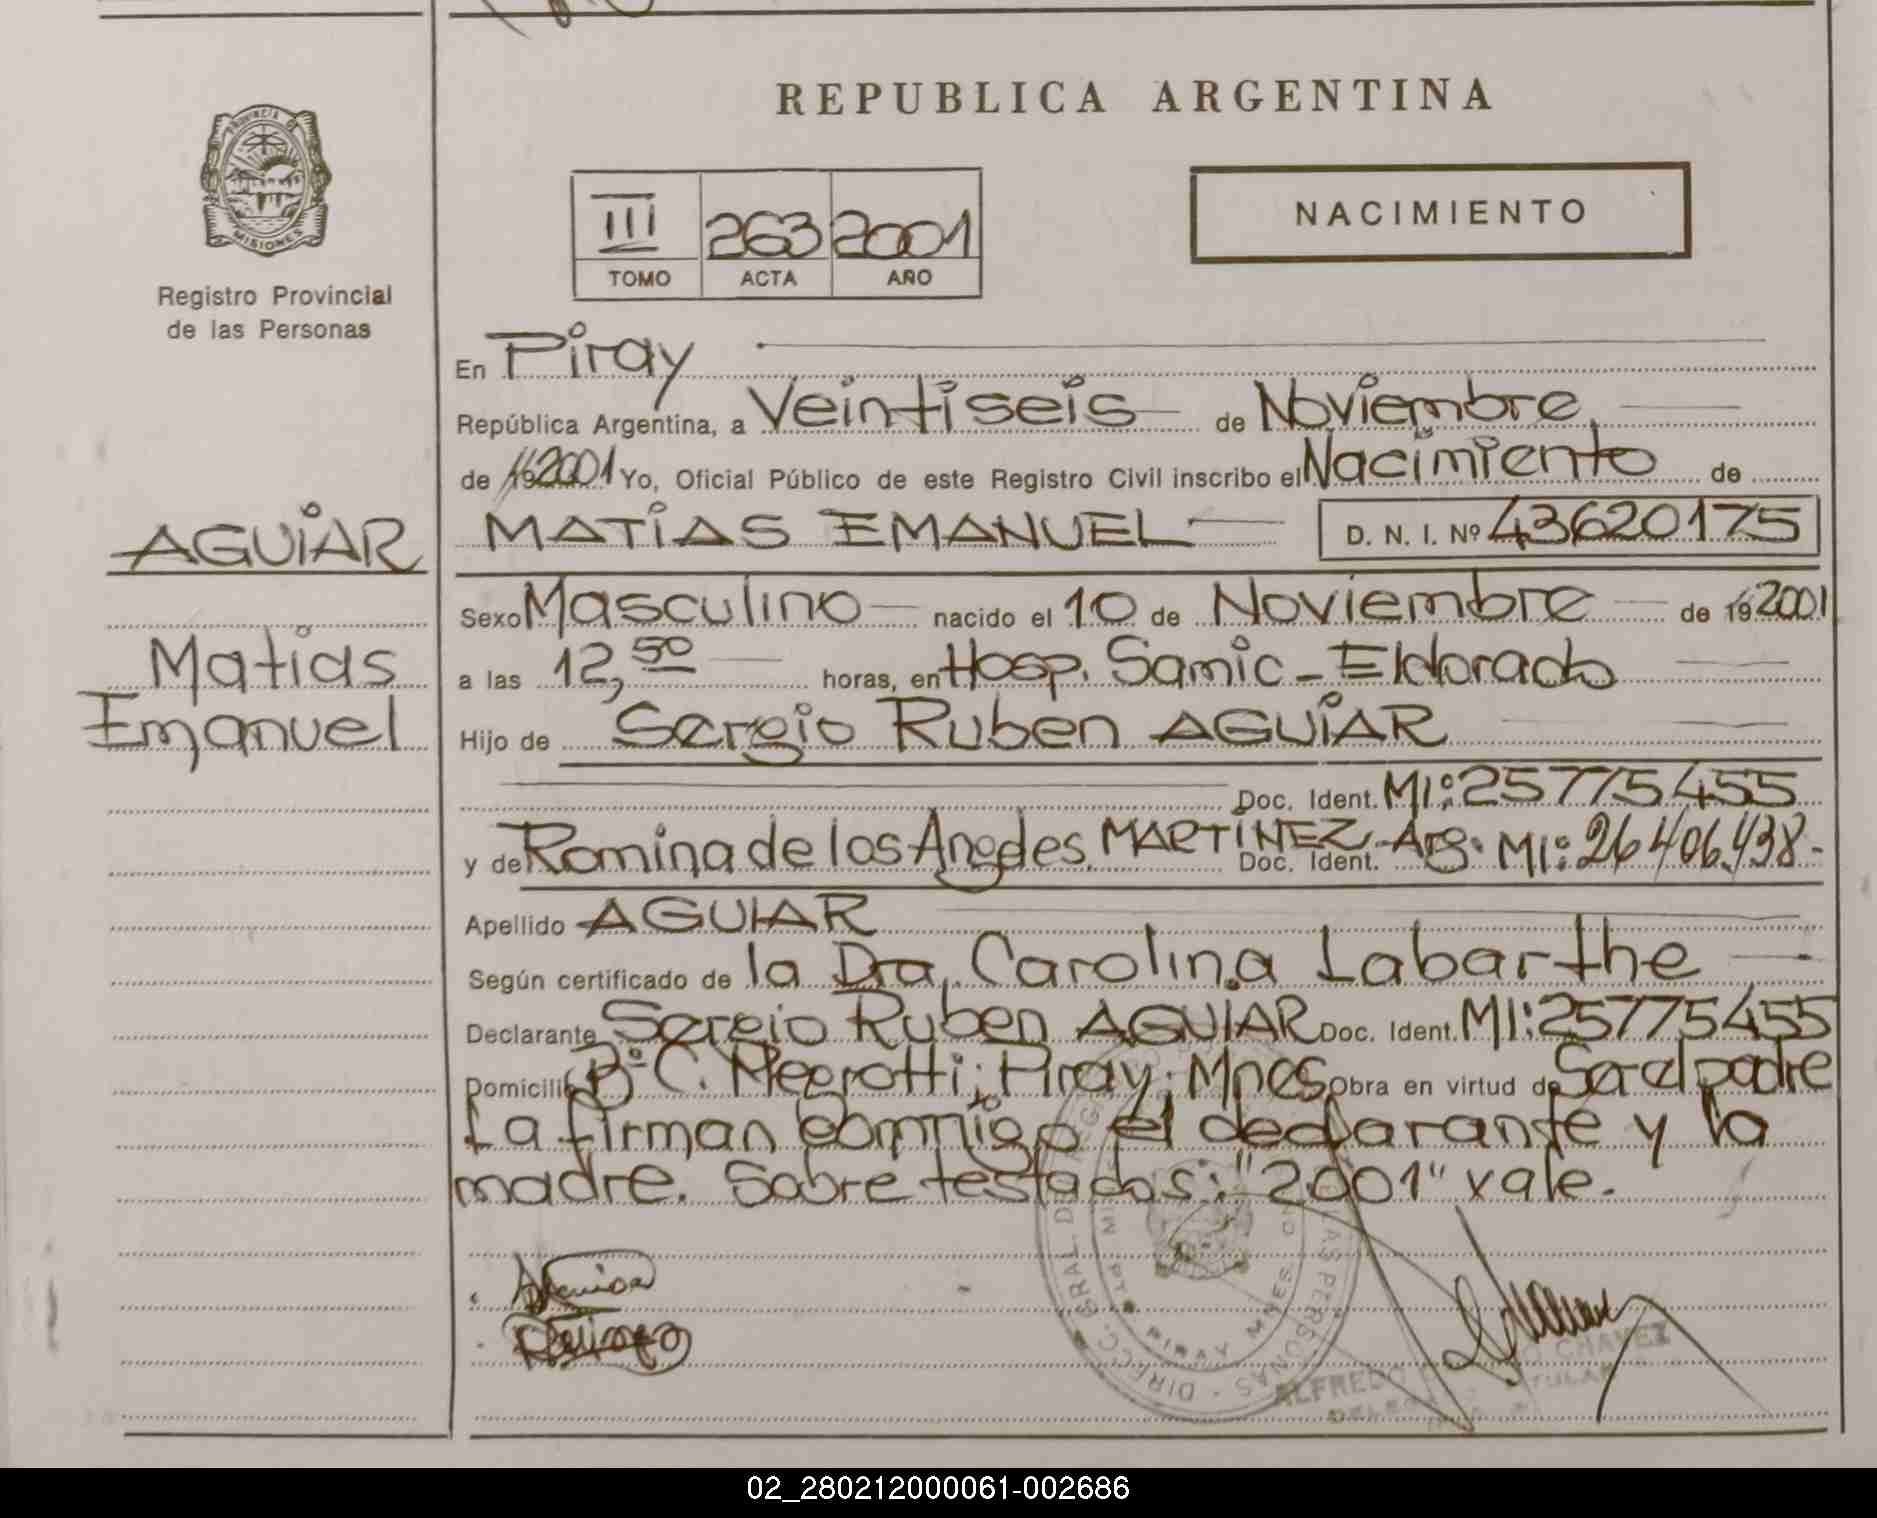 REPUBLICA ARGENTINA
PROVINCIA DE
MISIONES
Registro Provincial
de las Personas
III 263 2001
TOMO ACTA AÑO
NACIMIENTO
En Piray
República Argentina, a Veintiseis de Noviembre
de 19 2001 Yo, Oficial Público de este Registro Civil inscribo el Nacimiento de
AGUiAR
MATiAS EMANUEL D. N. I. Nº 43620175
Sexo Masculino nacido el 10 de Noviembre de 19 2001
Matias
Emanuel
a las 12,50 horas, en Hosp. Samic - Eldorado
Hijo de Sergio Ruben AGUiAR
Doc. Ident. MI: 25775455
y de Romina de los Angeles MARTÍNEZ - Arg. Doc. Ident. MI: 26406.438.-
Apellido AGUIAR
Según certificado de la Dra. Carolina Labarthe
Declarante Sergio Ruben AGUIAR Doc. Ident. MI: 25775455
Domicilio Bº C. Piray; Mnes Obra en virtud de Ser el padre
La firman conmigo el declarante y la
madre. Sobre testados: "2001" vale.
DIRECC. GRAL. DE LAS PERSONAS
PIRAY MNES
ALFREDO CHAVEZ
TITULAR
02_280212000061-002686